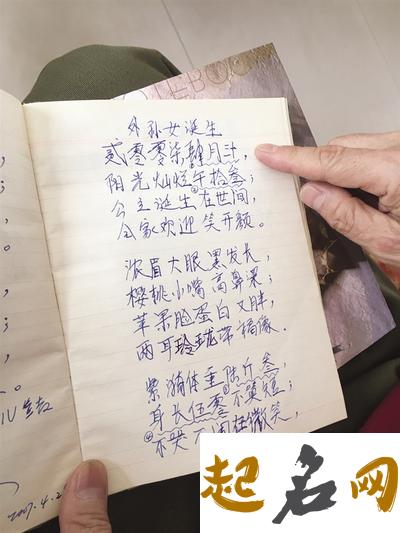 外孙女诞生
贰零零柒肆月廿,
阳光灿烂午拾叁;
公主诞生在世间,
全家欢迎笑开颜。
浓眉大眼黑发长,
樱桃小嘴高鼻梁;
苹果脸蛋白又胖,
两耳玲珑带福像.
体重陆斤叁,
身长伍零不算短;
不哭不闹在微笑,
2007.4.2
起名网